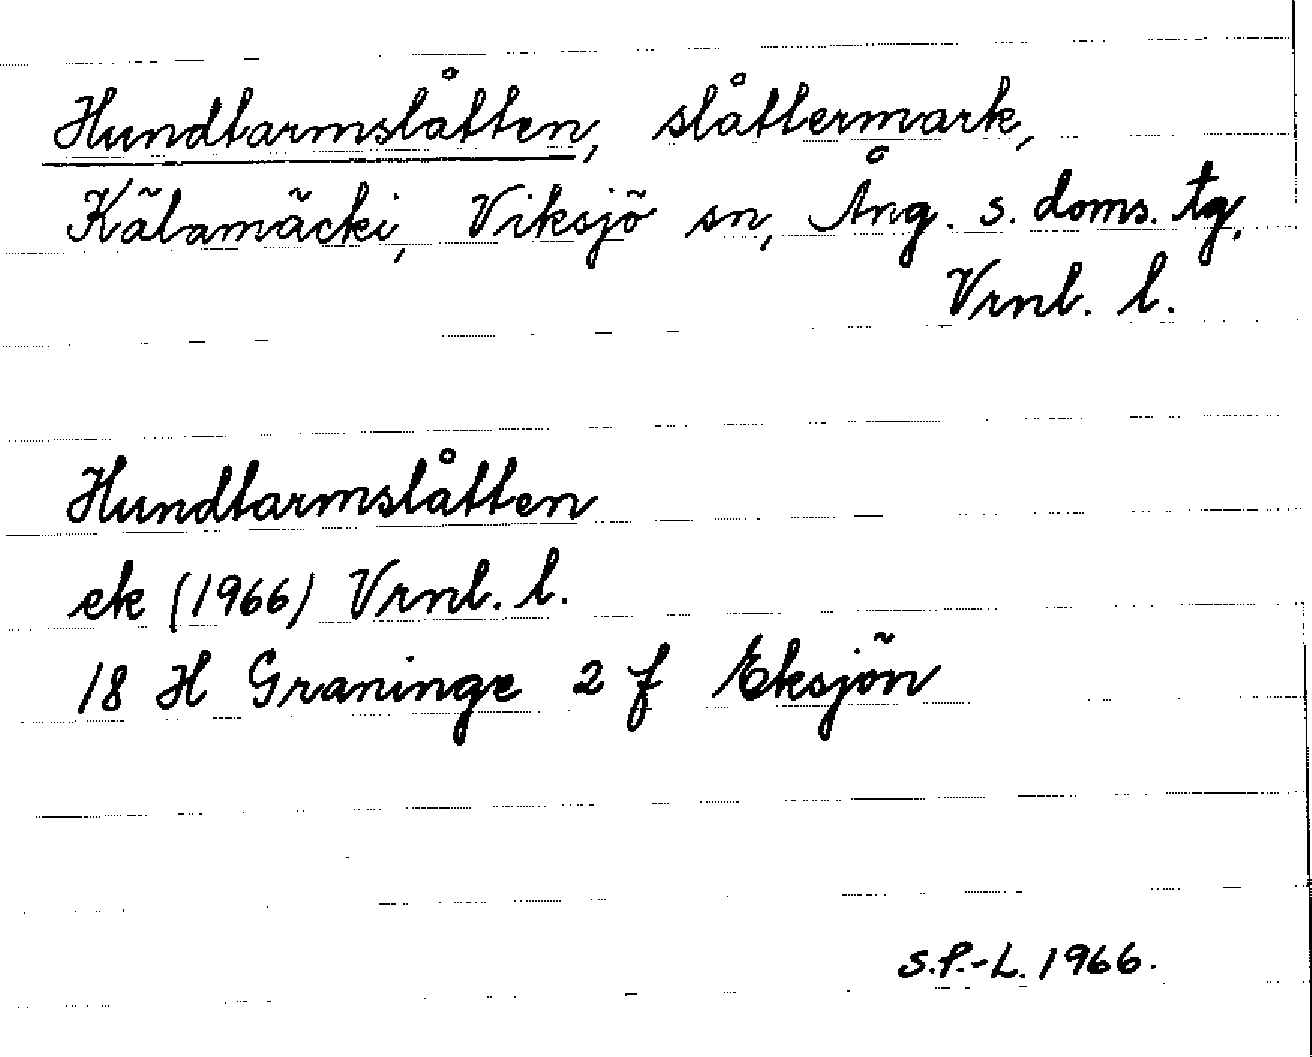 Hundtarmslåtten, slåttermark,
Kälamäcki, Viksjö sn, Ång. s. doms. tg,
Vrnl. l.
Hundtarmslåtten
ek (1966) Vrnl. l.
18 H Graninge 2 f Eksjön
S.P.-L. 1966.